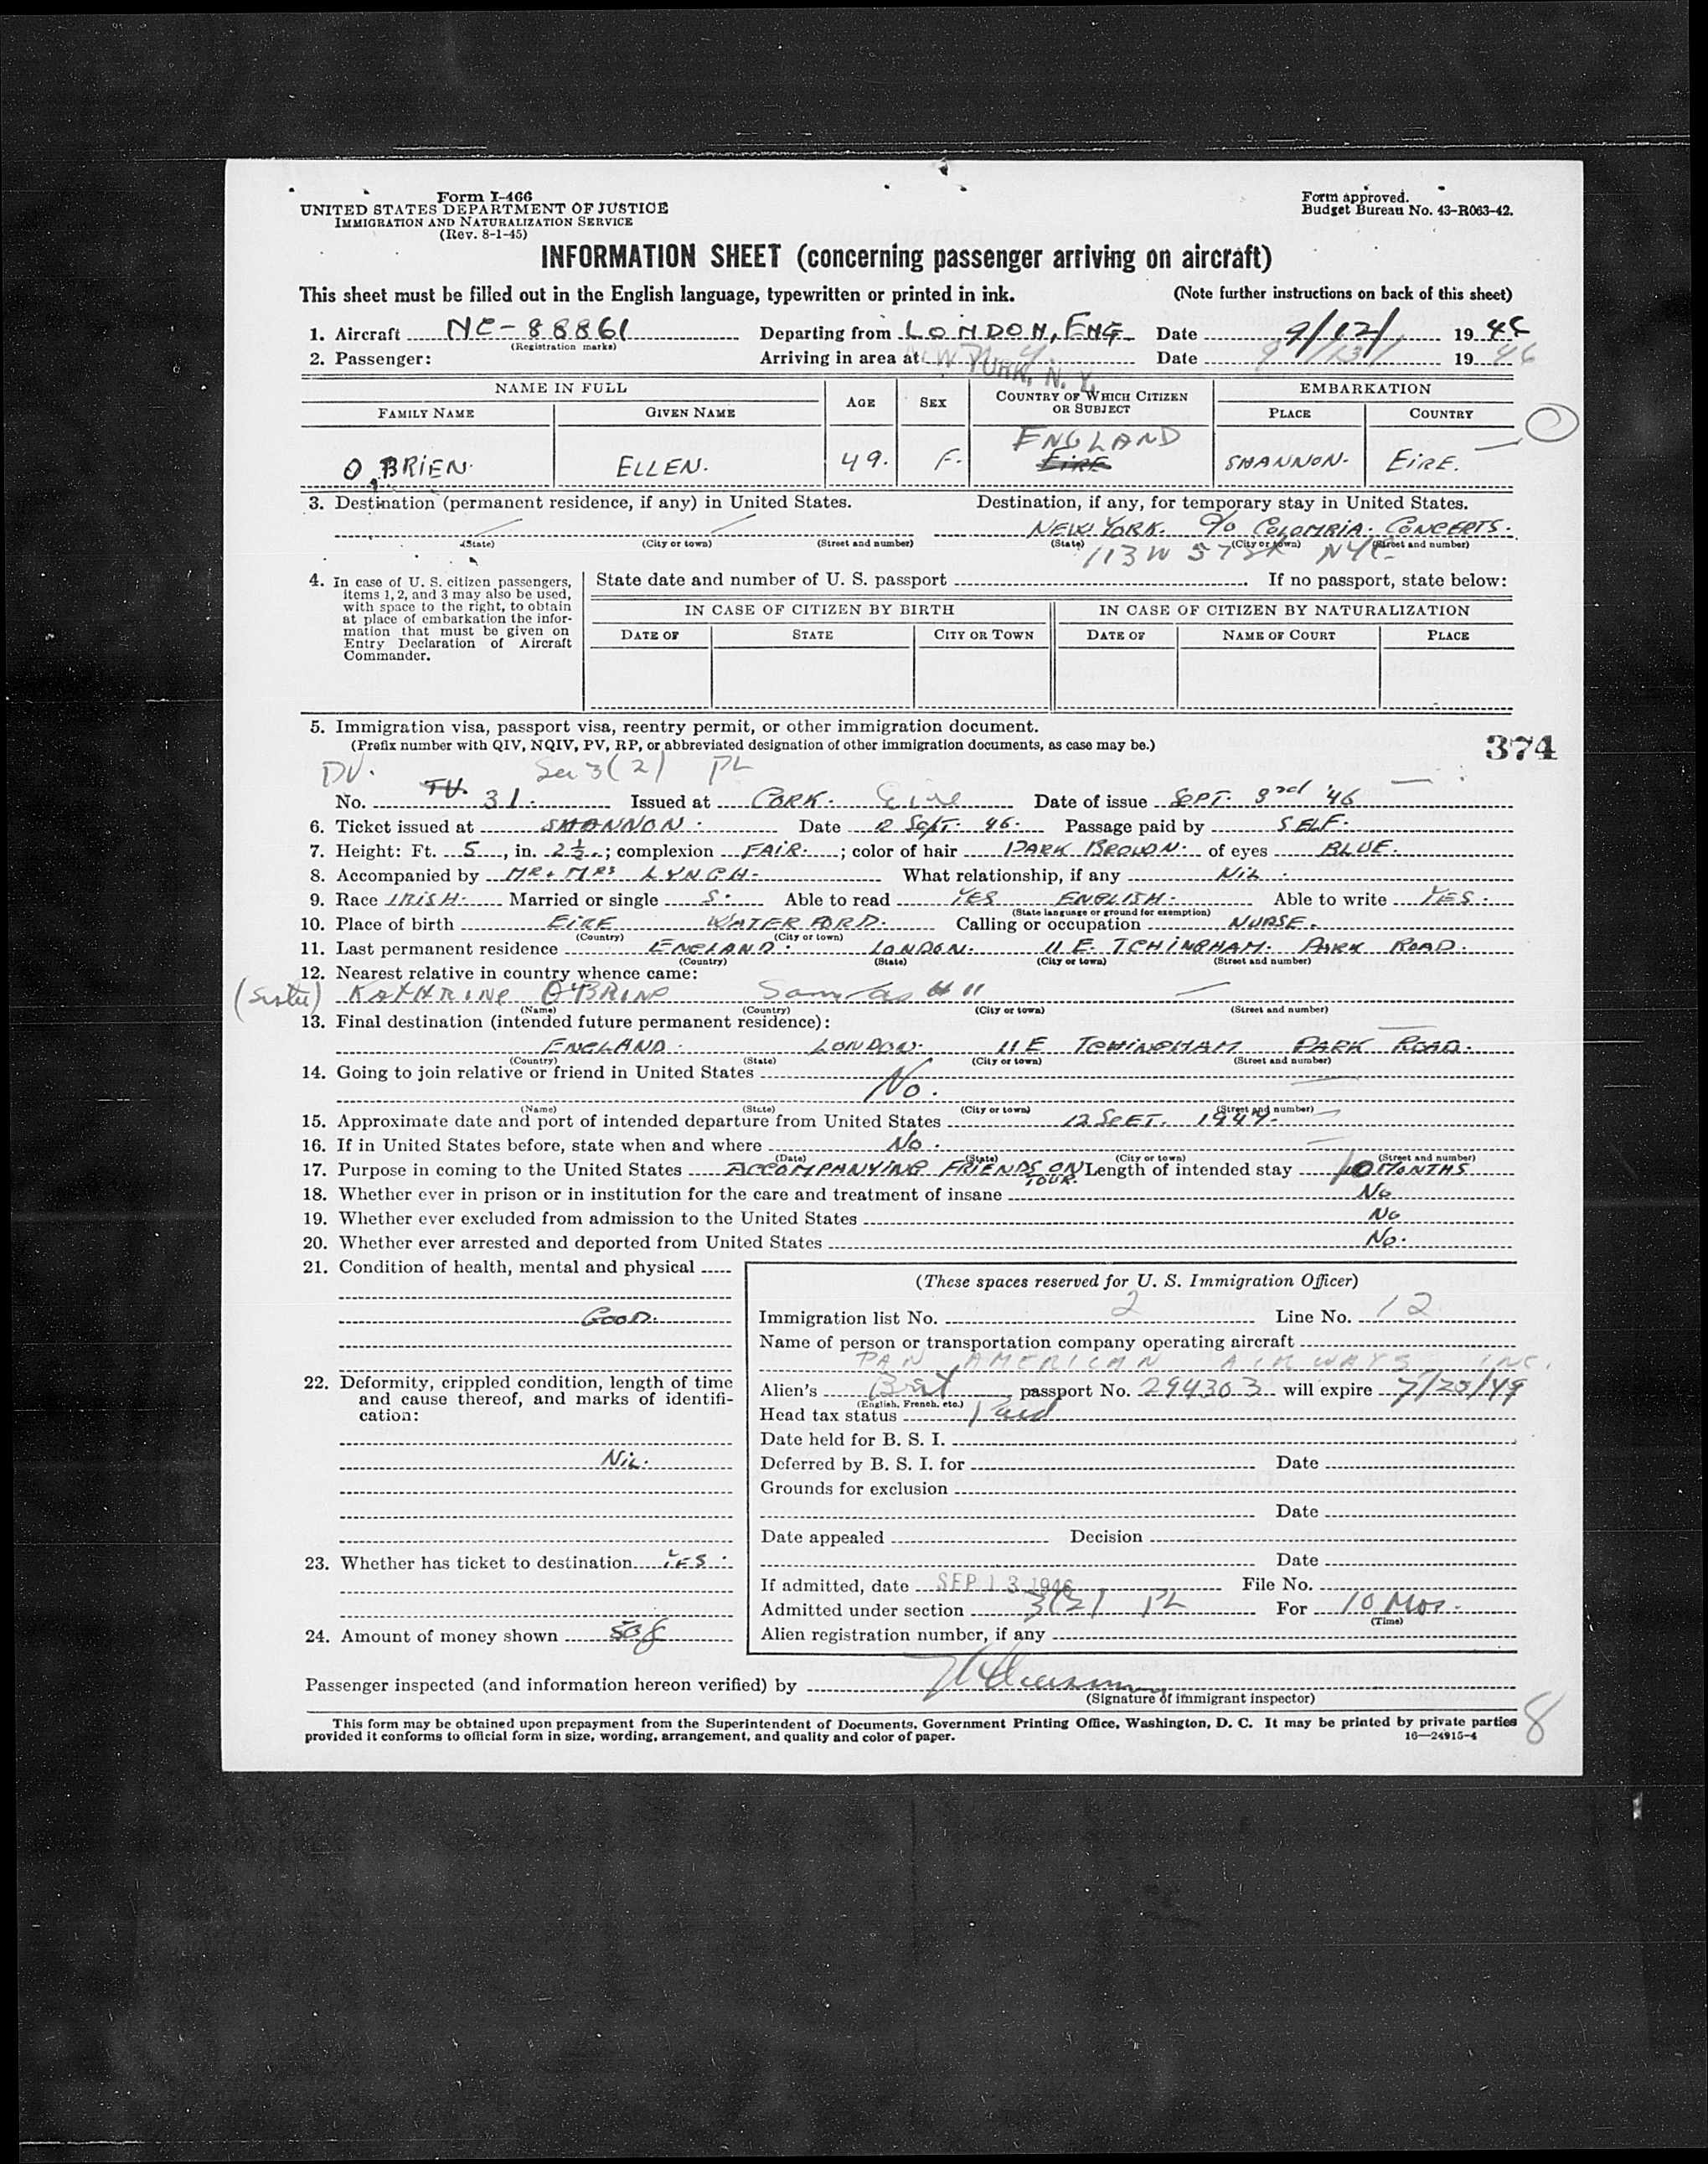 Form I-466
UNITED STATES DEPARTMENT OF JUSTICE
IMMIGRATION AND NATURALIZATION SERVICE
(Rev. 8-1-45)
Form approved.
Budget Bureau No. 43-R063-42.
INFORMATION SHEET (concerning passenger arriving on aircraft)
This sheet must be filled out in the English language, typewritten or printed in ink. (Note further instructions on back of this sheet)
1. Aircraft NC-88861 Departing from LONDON, ENG Date 9/12/ 1946
(Registration marks)
2. Passenger: Arriving in area at NEW YORK, N. Y. Date 9/13/ 1946
NAME IN FULL AGE SEX COUNTRY OF WHICH CITIZEN OR SUBJECT EMBARKATION
FAMILY NAME GIVEN NAME PLACE COUNTRY
ENGLAND
O'BRIEN. ELLEN. 49. F. EIRE SHANNON. EIRE.
3. Destination (permanent residence, if any) in United States. Destination, if any, for temporary stay in United States.
NEW YORK. c/o COLOMRIA. CONCERTS.
(State) (City or town) (Street and number) (State) (City or town) (Street and number)
113 W 57 St NYC
4. In case of U. S. citizen passengers, items 1, 2, and 3 may also be used, with space to the right, to obtain at place of embarkation the information that must be given on Entry Declaration of Aircraft Commander.
State date and number of U. S. passport If no passport, state below:
IN CASE OF CITIZEN BY BIRTH IN CASE OF CITIZEN BY NATURALIZATION
DATE OF STATE CITY OR TOWN DATE OF NAME OF COURT PLACE
5. Immigration visa, passport visa, reentry permit, or other immigration document.
(Prefix number with QIV, NQIV, PV, RP, or abbreviated designation of other immigration documents, as case may be.)
374
PV. Sec 3(2) PL
No. TV. 31. Issued at CORK. Eire Date of issue SEPT. 3rd '46
6. Ticket issued at SHANNON. Date 12 Sept. 46. Passage paid by SELF.
7. Height: Ft. 5, in. 2½.; complexion FAIR.; color of hair DARK BROWN. of eyes BLUE.
8. Accompanied by MR + MRS LYNCH. What relationship, if any NIL.
9. Race IRISH. Married or single S. Able to read YES ENGLISH. Able to write YES.
(State language or ground for exemption)
10. Place of birth EIRE WATERFORD. Calling or occupation NURSE.
(Country) (City or town)
11. Last permanent residence ENGLAND. LONDON. 11 E. TCHINGHAM. PARK ROAD.
(Country) (State) (City or town) (Street and number)
12. Nearest relative in country whence came:
(Sister) KATHRINE O'BRINE Same as # 11
(Name) (Country) (City or town) (Street and number)
13. Final destination (intended future permanent residence):
ENGLAND. LONDON. 11 E TCHINGHAM PARK ROAD.
(Country) (State) (City or town) (Street and number)
14. Going to join relative or friend in United States
No.
(Name) (State) (City or town) (Street and number)
15. Approximate date and port of intended departure from United States 12 SEPT. 1947.
16. If in United States before, state when and where No.
(Date) (State) (City or town) (Street and number)
17. Purpose in coming to the United States ACCOMPANYING FRIENDS ON TOUR. Length of intended stay 10 MONTHS
18. Whether ever in prison or in institution for the care and treatment of insane No
19. Whether ever excluded from admission to the United States No
20. Whether ever arrested and deported from United States No.
21. Condition of health, mental and physical
GOOD.
22. Deformity, crippled condition, length of time and cause thereof, and marks of identification:
NIL.
23. Whether has ticket to destination YES.
24. Amount of money shown
(These spaces reserved for U. S. Immigration Officer)
Immigration list No. 2 Line No. 12
Name of person or transportation company operating aircraft
PAN AMERICAN AIRWAYS INC.
Alien's Brit passport No. 294303 will expire 7/25/49
(English, French, etc.)
Head tax status Paid
Date held for B. S. I.
Deferred by B. S. I. for Date
Grounds for exclusion
Date
Date appealed Decision
Date
If admitted, date SEP 13 1946 File No.
Admitted under section 3(2) PL For 10 Mos.
(Time)
Alien registration number, if any
Passenger inspected (and information hereon verified) by
(Signature of immigrant inspector)
This form may be obtained upon prepayment from the Superintendent of Documents, Government Printing Office, Washington, D. C. It may be printed by private parties
provided it conforms to official form in size, wording, arrangement, and quality and color of paper. 16—24915-4
8